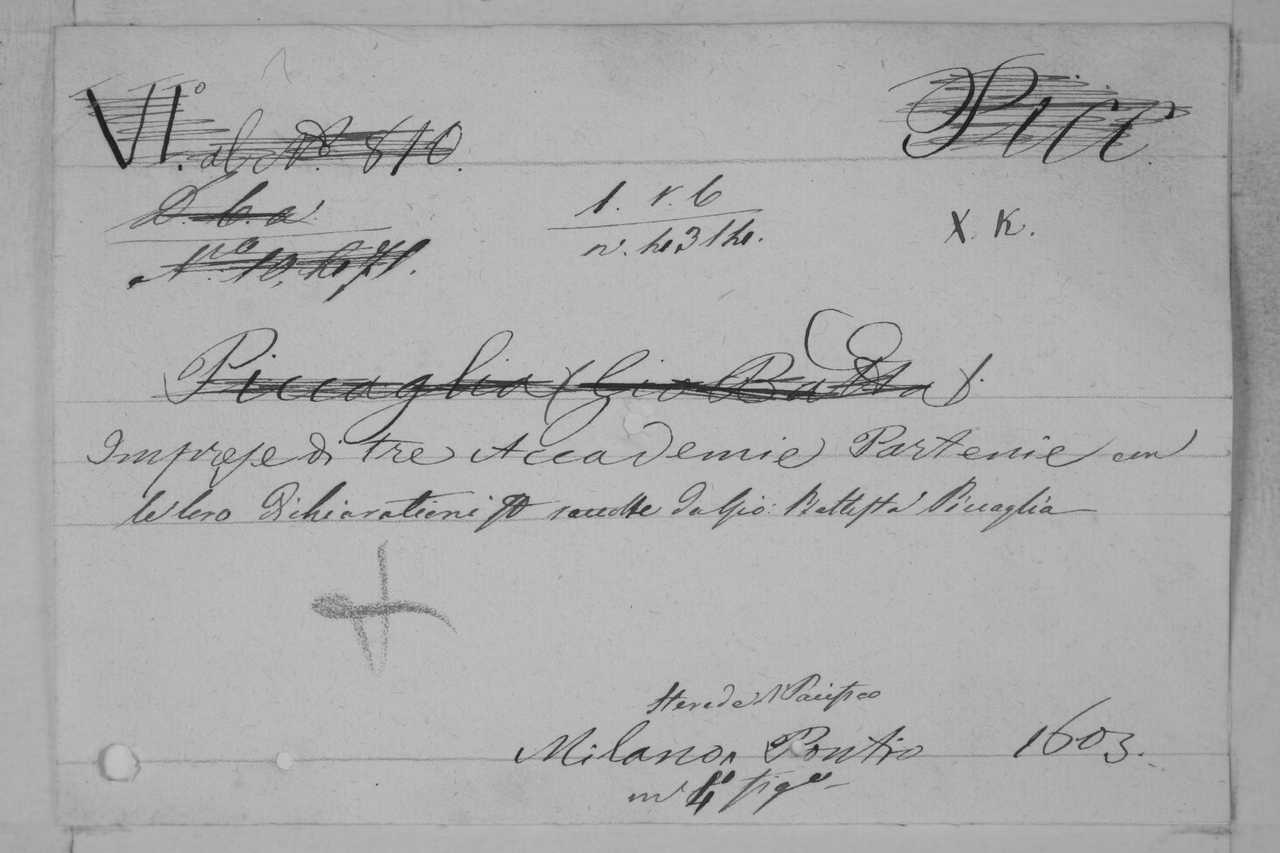 VI.° al N.° 810.
Picc
D. 6. a
N.ro 10,
1. v. 6
X. K.
Piccaglia (Gio Batta).
Imprese di tre Accademie Partenie con
le loro dichiarationi raccolte da Gio: Battista Piccaglia
Herede d Pacifico
Milano, Pontio 1603.
in 4° fig.e